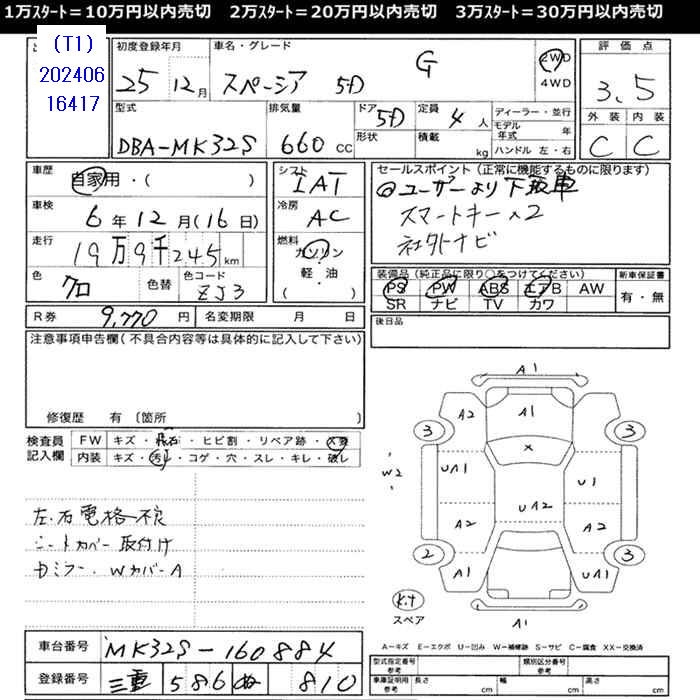 1万ｽﾀｰﾄ＝10万円以内売切　2万ｽﾀｰﾄ＝20万円以内売切　3万ｽﾀｰﾄ＝30万円以内売切
(T1)
202406
16417
初度登録年月
25 12月
車名・グレード
スペーシア 5D G
2WD
4WD
評価点
3.5
外装 内装
C C
型式
DBA-MK32S
排気量
660 CC
ドア 5D
形状
定員 4 人
積載 kg
ディーラー・並行
モデル年式 年
ハンドル 左・右
車歴
自家用・( )
車検
6年12月(16日)
走行
19万9千245 km
色 クロ
色替
色コード ZJ3
シフト
IAT
冷房
AC
燃料
ガソリン
軽・油
( )
セールスポイント(正常に機能するものに限ります)
◎ユーザーより下取車
スマートキー×2
社外ナビ
装備品(純正品に限り○をつけてください)
PS PW ABS エアB AW
SR ナビ TV カワ
新車保証書
有・無
R券 9,770 円
名変期限 月 日
後日品
注意事項申告欄(不具合内容等は具体的に記入して下さい)
修復歴 有 〔箇所 〕
検査員
記入欄
FW キズ・飛石・ヒビ割・リペア跡・
内装 キズ・汚れ・コゲ・穴・スレ・キレ・破レ
左・右電格不良
シートカバー取付け
Dミラー・WカバーA
A1
A2 A1
3 3
X
W2 UA1 U1
UA2
A2 A2
2 3
A1 UA1
A1
Kit
スペア
A－キズ E－エクボ U－凹み W－補修跡 S－サビ C－腐食 XX－交換済
車台番号 MK32S-160884
登録番号 三重 586 810
型式指定番号 参考
類別区分番号 参考
車庫証明用 参考 長さ cm 幅 cm 高さ cm